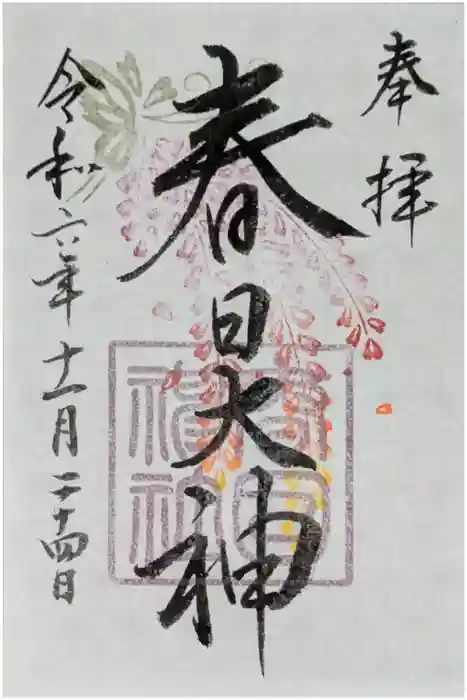 奉拝
春日大神
令和六年十一月二十四日